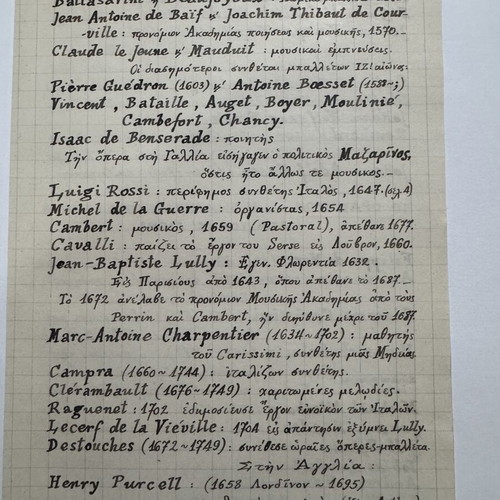 Jean Antoine de Baïf κ' Joachim Thibaut de Cour-
ville : προνόμιον Ἀκαδημίας ποιήσεως καὶ μουσικῆς, 1570.–
Claude le Jeune κ' Mauduit : μουσικαὶ ἐμπνεύσεις.
Οἱ διασημότεροι συνθέται μπαλλέτων ΙΖ! αἰῶνος:
Pièrre Guédron (1603) κ' Antoine Boesset (1588~;)
Vincent, Bataille, Auget, Boyer, Moulinié,
Cambefort, Chancy.
Isaac de Benserade : ποιητὴς
Τὴν ὄπερα στὴ Γαλλία εἰσήγαγεν ὁ πολιτικὸς Μαζαρῖνος,
ὅστις ἦτο ἄλλως τε μουσικος.–
Luigi Rossi : περίφημος συνθέτης Ἰταλὸς, 1647. (σελ. 4)
Michel de la Guerre : ὀργανίστας, 1654
Cambert : μουσικὸς, 1659 (Pastoral), ἀπέθανε 1677.
Cavalli : παίζει τὸ ἔργον του Serse εἰς Λοῦβρον, 1660.
Jean-Baptiste Lully : Ἐγεν. Φλωρεντία 1632.
Εἰς Παρισίους ἀπὸ 1643, ὅπου ἀπέθανε τὸ 1687.–
Τὸ 1672 ἀνέλαβε τὸ προνόμιον Μουσικῆς Ἀκαδημίας ἀπὸ τους
Perrin καὶ Cambert, ἣν διηύθυνε μέχρι τοῦ 1687.
Marc-Antoine Charpentier (1634~1702) : μαθητὴς
τοῦ Carissimi, συνθέτης μιᾶς Μηδείας.
Campra (1660~1744) : ἰταλίζων συνθέτης.
Clérambault (1676~1749) : χαριτωμένες μελωδίες.
Raguenot : 1702 ἐδημοσίευσε ἔργον εὐνοϊκὸν τῶν Ἰταλῶν.
Lecerf de la Viéville : 1704 εἰς ἀπάντησιν ἐξύμνει Lully.
Destouches (1672~1749) : συνέθεσε ὡραῖες ὄπερες-μπαλλέτα.
Στὴν Ἀγγλία :
Henry Purcell : (1658 Λονδῖνον ~ 1695)